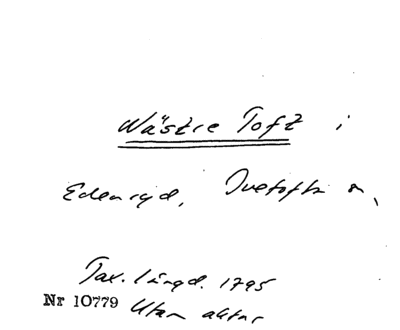 Wästre Toft i
Edenryd, Ivetofta s,
Tax. längd. 1795
Nr 10779 Utan aktnr